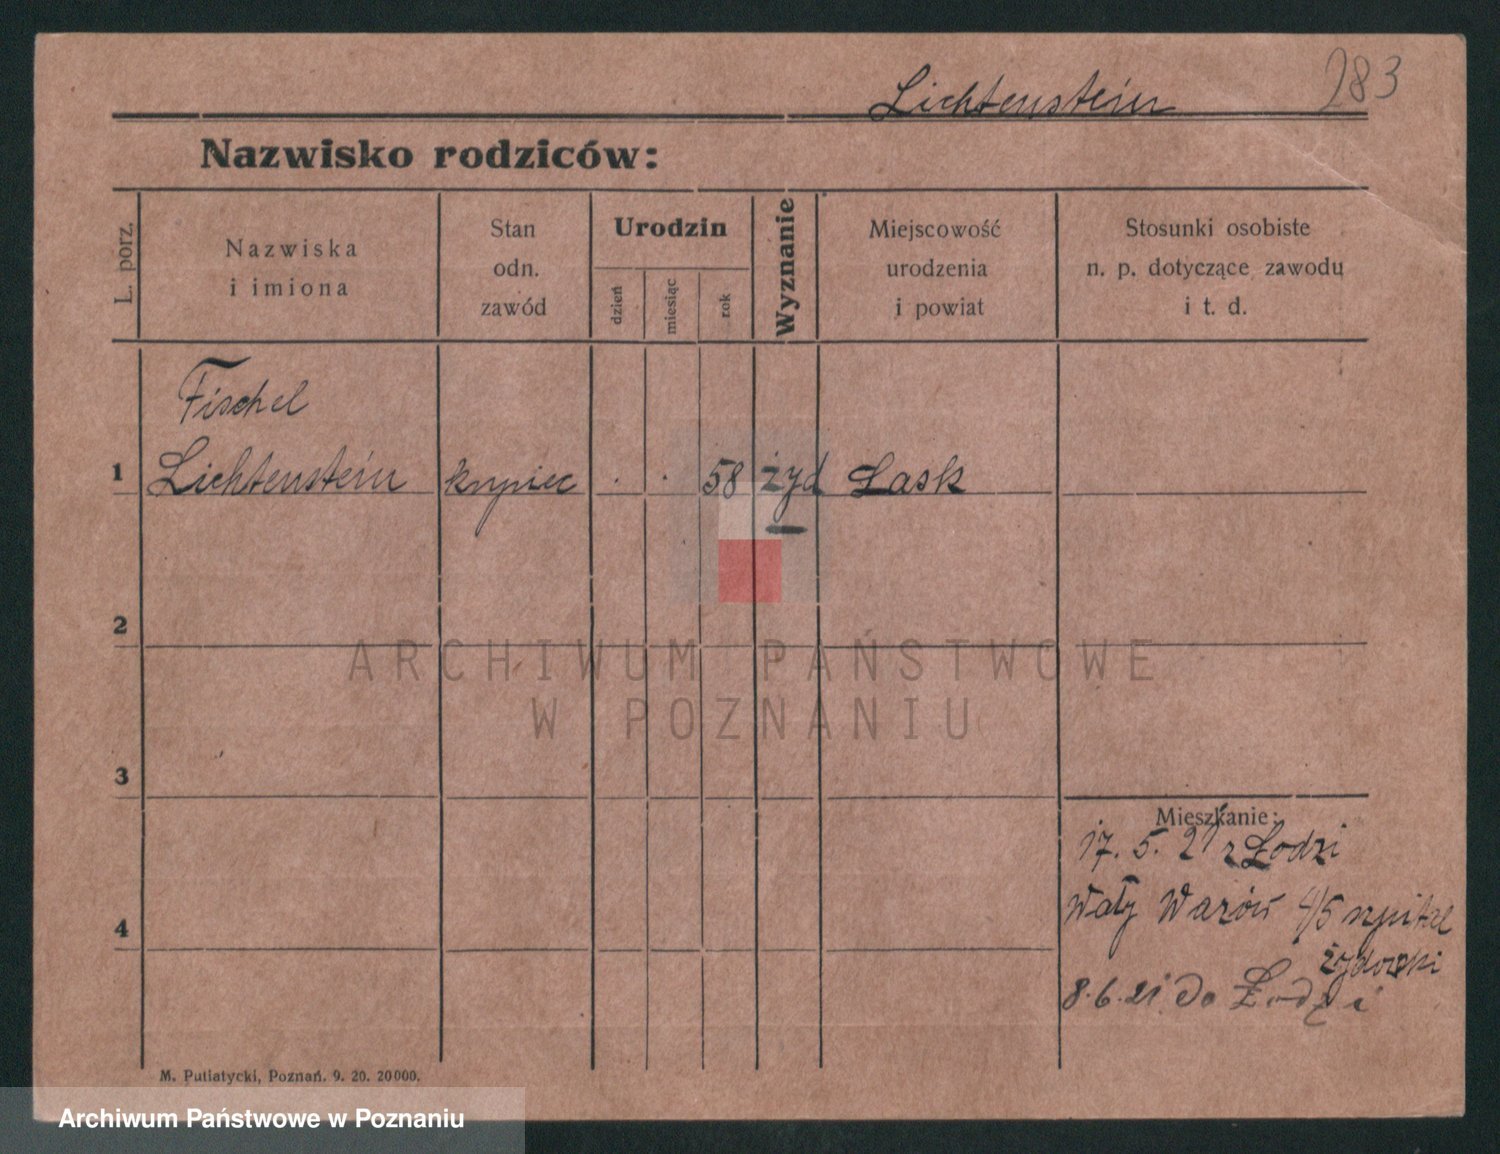 Lichtenstein
283
Nazwisko rodziców:
L. porz.
Nazwiska
i imiona
Stan
odn.
zawód
Urodzin
dzień
miesiąc
rok
Wyznanie
Miejscowość
urodzenia
i powiat
Stosunki osobiste
n. p. dotyczące zawodu
i t. d.
Fischel
1 Lichtenstein kupiec . . 58 żyd Łask
2
ARCHIWUM PAŃSTWOWE
W POZNANIU
3
Mieszkanie:
17. 5. 21 z Łodzi
4
Wały Wazów 4/5 szpital
żydowski
8. 6. 21 do Łodzi
M. Putiatycki, Poznań. 9. 20. 20000.
Archiwum Państwowe w Poznaniu